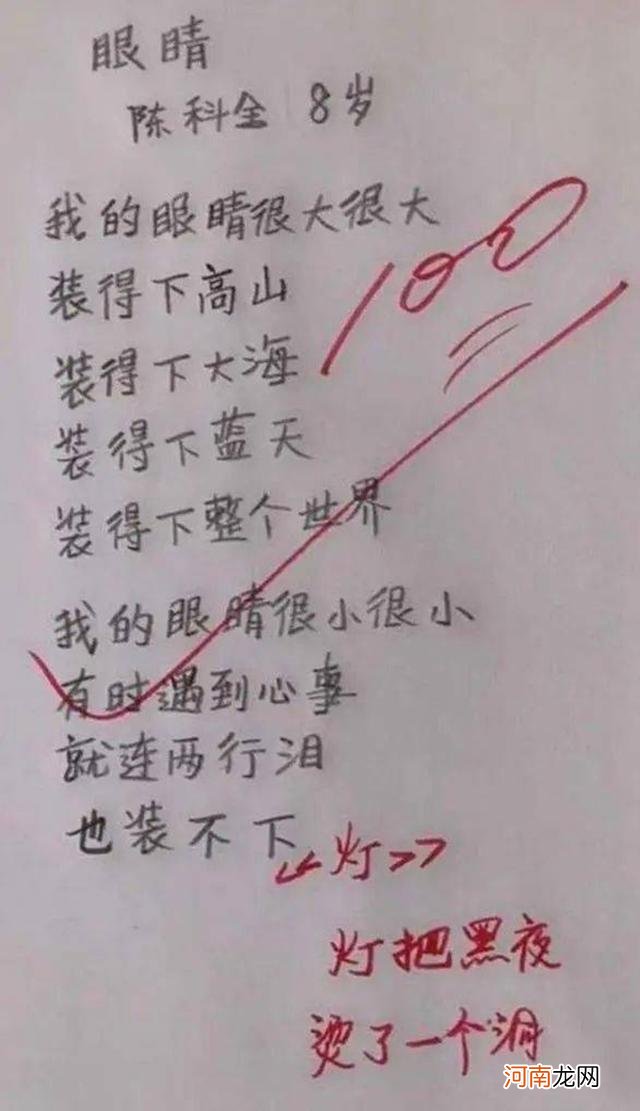 眼睛
陈科全 8岁
我的眼睛很大很大
装得下高山
装得下大海
装得下蓝天
装得下整个世界
我的眼睛很小很小
有时遇到心事
就连两行泪
也装不下
100
《灯》
灯把黑夜
烫了一个洞
河南龙网